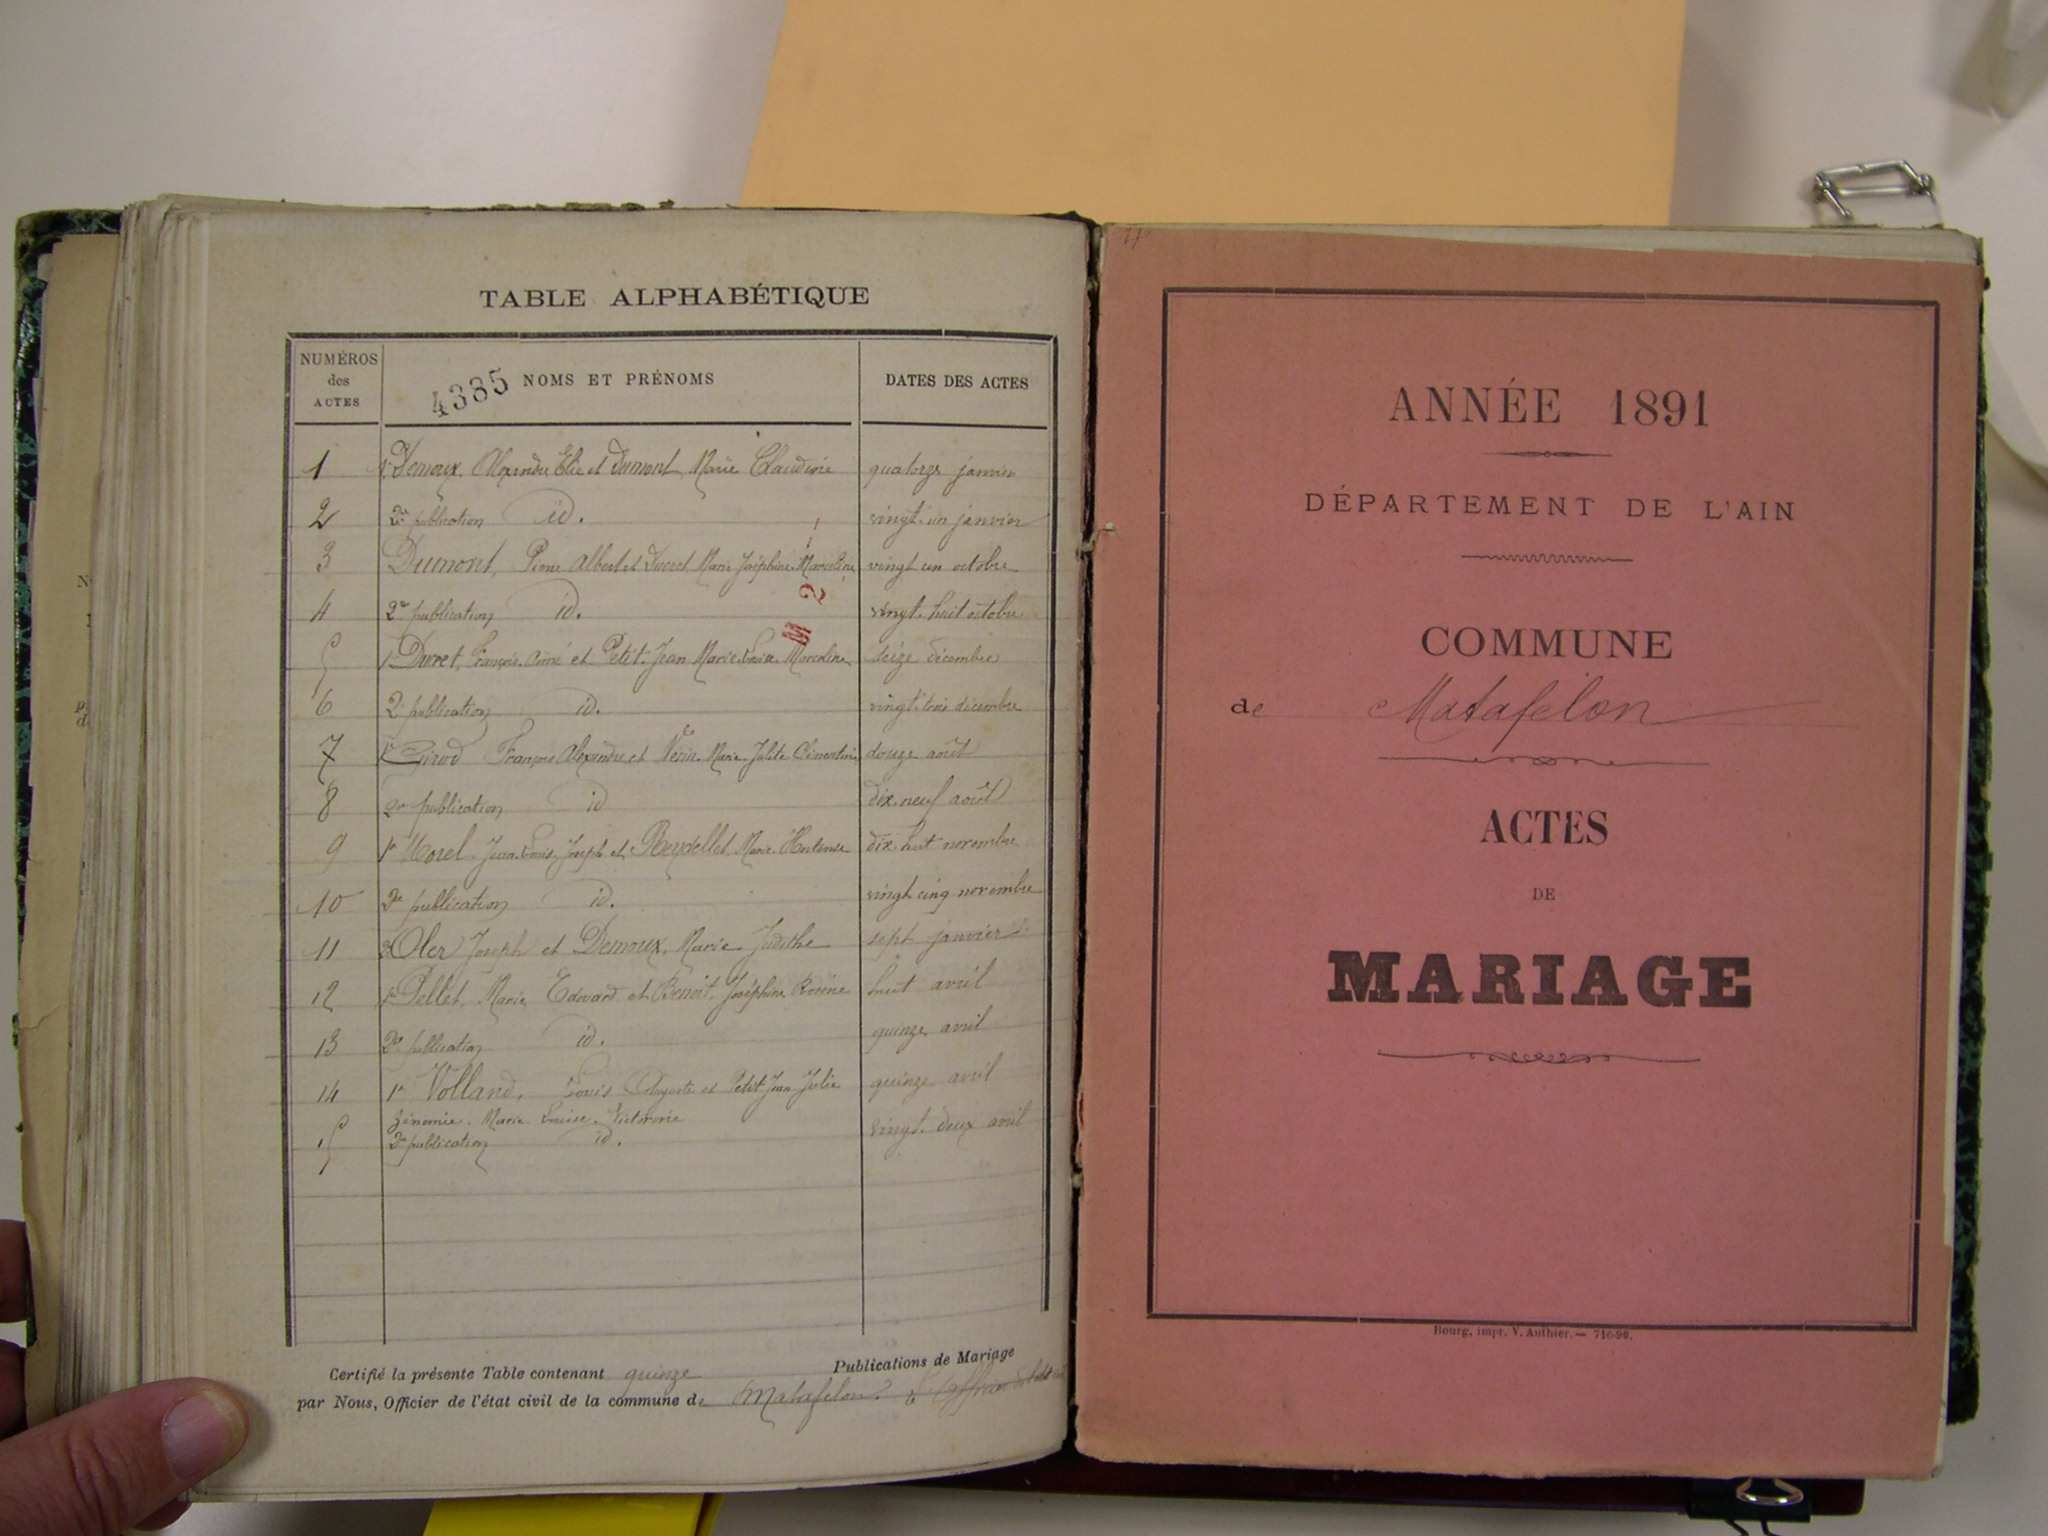 TABLE ALPHABÉTIQUE
NUMÉROS des ACTES
4385 NOMS ET PRÉNOMS
DATES DES ACTES
1 1re Demoux, Alexandre Elie et Dumont Marie Claudine quatorze janvier
2 2me publication id. vingt-un janvier
3 Dumont, Pierre Albert et Ducret Marie Joséphine Marceline vingt un octobre
4 2e publication id. vingt-huit octobre
5 1 Ducret, François Aimé et Petit-Jean Marie Louise Marceline seize décembre
6 2e publication id. vingt-trois décembre
7 1re Girod François Alexandre et Marie Julite Clémentine douze août
8 2me publication id dix-neuf août
9 1re Morel Jean Louis Joseph et Reydellet Marie Hortense dix-huit novembre
10 2me publication id. vingt cinq novembre
11 2 Oler Joseph et Demoux, Marie Judithe sept janvier
12 1re Pellet, Marie Edouard et Benoit Joséphine Rosine huit avril
13 2me publication id. quinze avril
14 1re Volland, Louis et Petit-Jean Julie quinze avril
Zénomie Marie Louise Victorine
15 2me publication id. vingt-deux avril
M 2
Certifié la présente Table contenant quinze Publications de Mariage
par Nous, Officier de l'état civil de la commune de Matafelon.
ANNÉE 1891
DÉPARTEMENT DE L'AIN
COMMUNE
de Matafelon
ACTES
DE
MARIAGE
Bourg, impr. V. Authier. — 716-90.